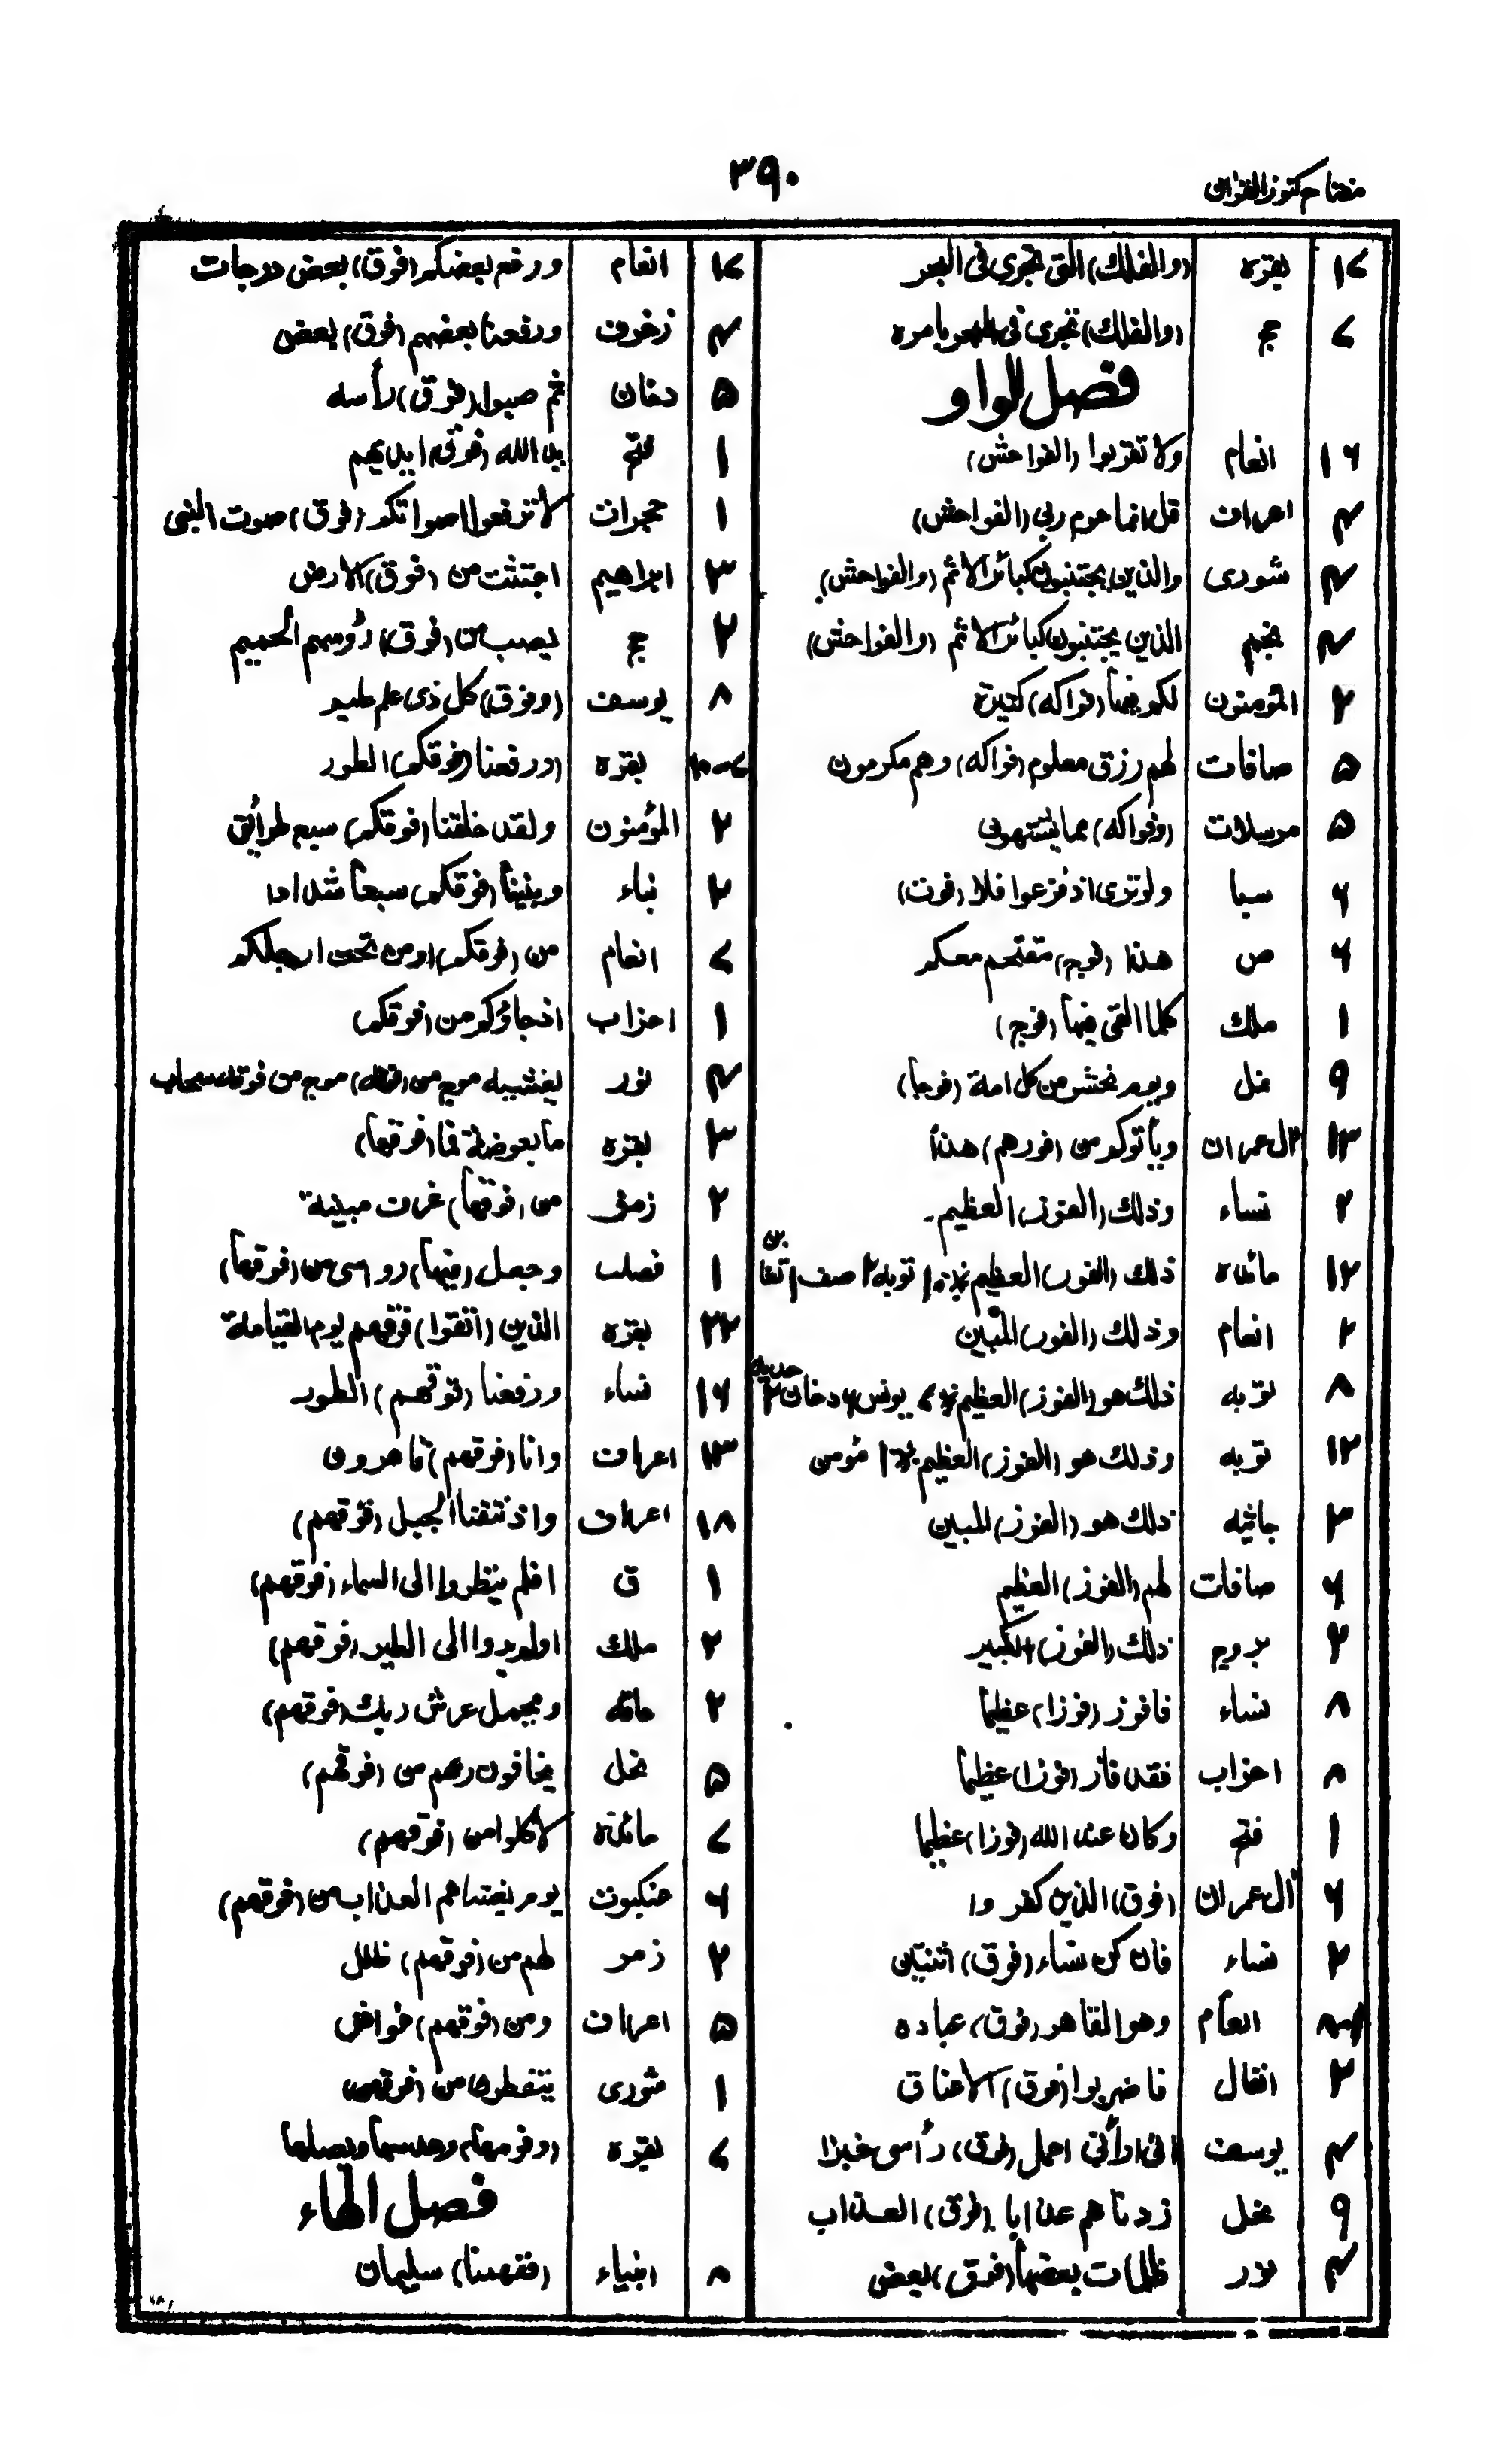 مفتاح کنوز القرآن
۳۹۰
۱۷ بقره (والفلك) التی تجری فی البحر
۷ حج (والفلك) تجری فی البحر بامره
فصل الواو
۱۶ انعام ولا تقربوا (الفواحش)
۴ اعراف قل انما حرم ربی (الفواحش)
۴ شوری والذین یجتنبون کبائر الاثم (والفواحش)
۴ نجم الذین یجتنبون کبائر الاثم (والفواحش)
۲ المؤمنون لکم فیها (فواکه) کثیرة
۵ صافات لهم رزق معلوم (فواکه) وهم مکرمون
۵ مرسلات (وفواکه) مما یشتهون
۶ سبا ولوتری اذ فزعوا فلا (فوت)
۶ ص هذا (فوج) مقتحم معکم
۱ ملك کلما القی فیها (فوج)
۹ نمل ویوم نحشر من کل امة (فوجا)
۱۳ آل عمران ویأتوکم من (فورهم) هذا
۲ نساء وذلك (الفوز) العظیم
۱۲ مائده ذلك (الفوز) العظیم توبه ۲ صف ۱ تغابن
۲ انعام وذلك (الفوز) المبین
۸ توبه ذلك هو (الفوز) العظیم یونس دخان ۳ حدید
۱۲ توبه وذلك هو (الفوز) العظیم ۱ مؤمن
۳ جاثیه ذلك هو (الفوز) المبین
۶ صافات لهو (الفوز) العظیم
۲ بروج ذلك (الفوز) الکبیر
۸ نساء فافوز (فوزا) عظیما
۸ احزاب فقد فاز (فوزا) عظیما
۱ فتح وکان عند الله (فوزا) عظیما
۶ آل عمران (فوق) الذین کفروا
۲ نساء فان کن نساء (فوق) اثنتین
انعام وهو القاهر (فوق) عباده
۲ انفال فاضربوا (فوق) الاعناق
۴ یوسف انی ارانی احمل (فوق) رأسی خبزا
۹ نحل زدناهم عذابا (فوق) العذاب
۴ نور ظلمات بعضها (فوق) بعض
۱۷ انعام ورفع بعضکم (فوق) بعض درجات
۴ زخرف ورفعنا بعضهم (فوق) بعض
۵ دخان ثم صبوا (فوق) رأسه
۱ فتح ید الله (فوق) ایدیهم
۱ حجرات لا ترفعوا اصواتکم (فوق) صوت النبی
۳ ابراهیم اجتثت من (فوق) الارض
۲ حج یصب من (فوق) رؤسهم الحمیم
۸ یوسف (وفوق) کل ذی علم علیم
بقره (ورفعنا (فوقکم) الطور
۲ المؤمنون ولقد خلقنا (فوقکم) سبع طرائق
۲ نباء وبنینا (فوقکم) سبعا شدادا
۷ انعام من (فوقکم) اومن تحت ارجلکم
۱ احزاب اذ جاؤکم من (فوقکم)
۴ نور یغشیه موج من (فوقه) موج من فوقه سحاب
۳ بقره ما بعوضة فما (فوقها)
۲ زمر من (فوقها) غرف مبنیة
۱ فصلت وجعل (فیها) رواسی من (فوقها)
۲۲ بقره الذین (اتقوا) فوقهم یوم القیامة
۱۶ نساء ورفعنا (فوقهم) الطور
۱۳ اعراف وانا (فوقهم) قاهرون
۱۸ اعراف واذ نتقنا الجبل (فوقهم)
۱ ق افلم ینظروا الی السماء (فوقهم)
۲ ملك اولم یروا الی الطیر (فوقهم)
۲ حاقه ویحمل عرش ربك (فوقهم)
۵ نحل یخافون ربهم من (فوقهم)
۷ مائدة لاکلوا من (فوقهم)
۶ عنکبوت یوم یغشاهم العذاب من (فوقهم)
۲ زمر لهم من (فوقهم) ظلل
۵ اعراف ومن (فوقهم) غواش
۱ شوری یتفطرن من (فوقهن)
۷ بقره (وفومها) وعدسها وبصلها
فصل الهاء
۸ انبیاء (ففهمنا) سلیمان